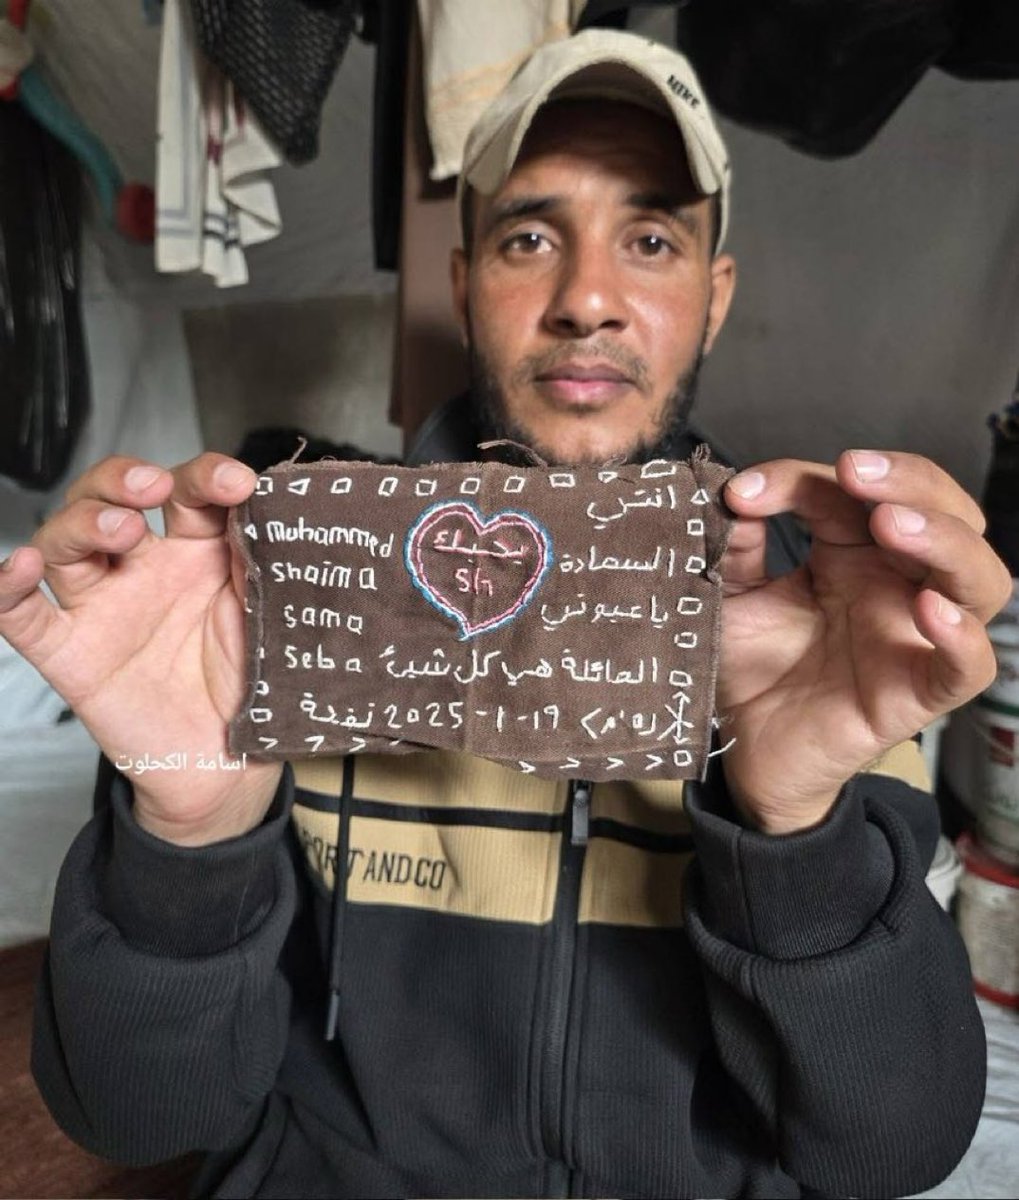 NIKE
انتي
Muhammed
بحبك
Sh
السعادة
Shaima
يا عيوني
Sama
العائلة هي كل شيئ
Seba
2025-1-19 نفحة
اسامة الكحلوت
PORT AND CO